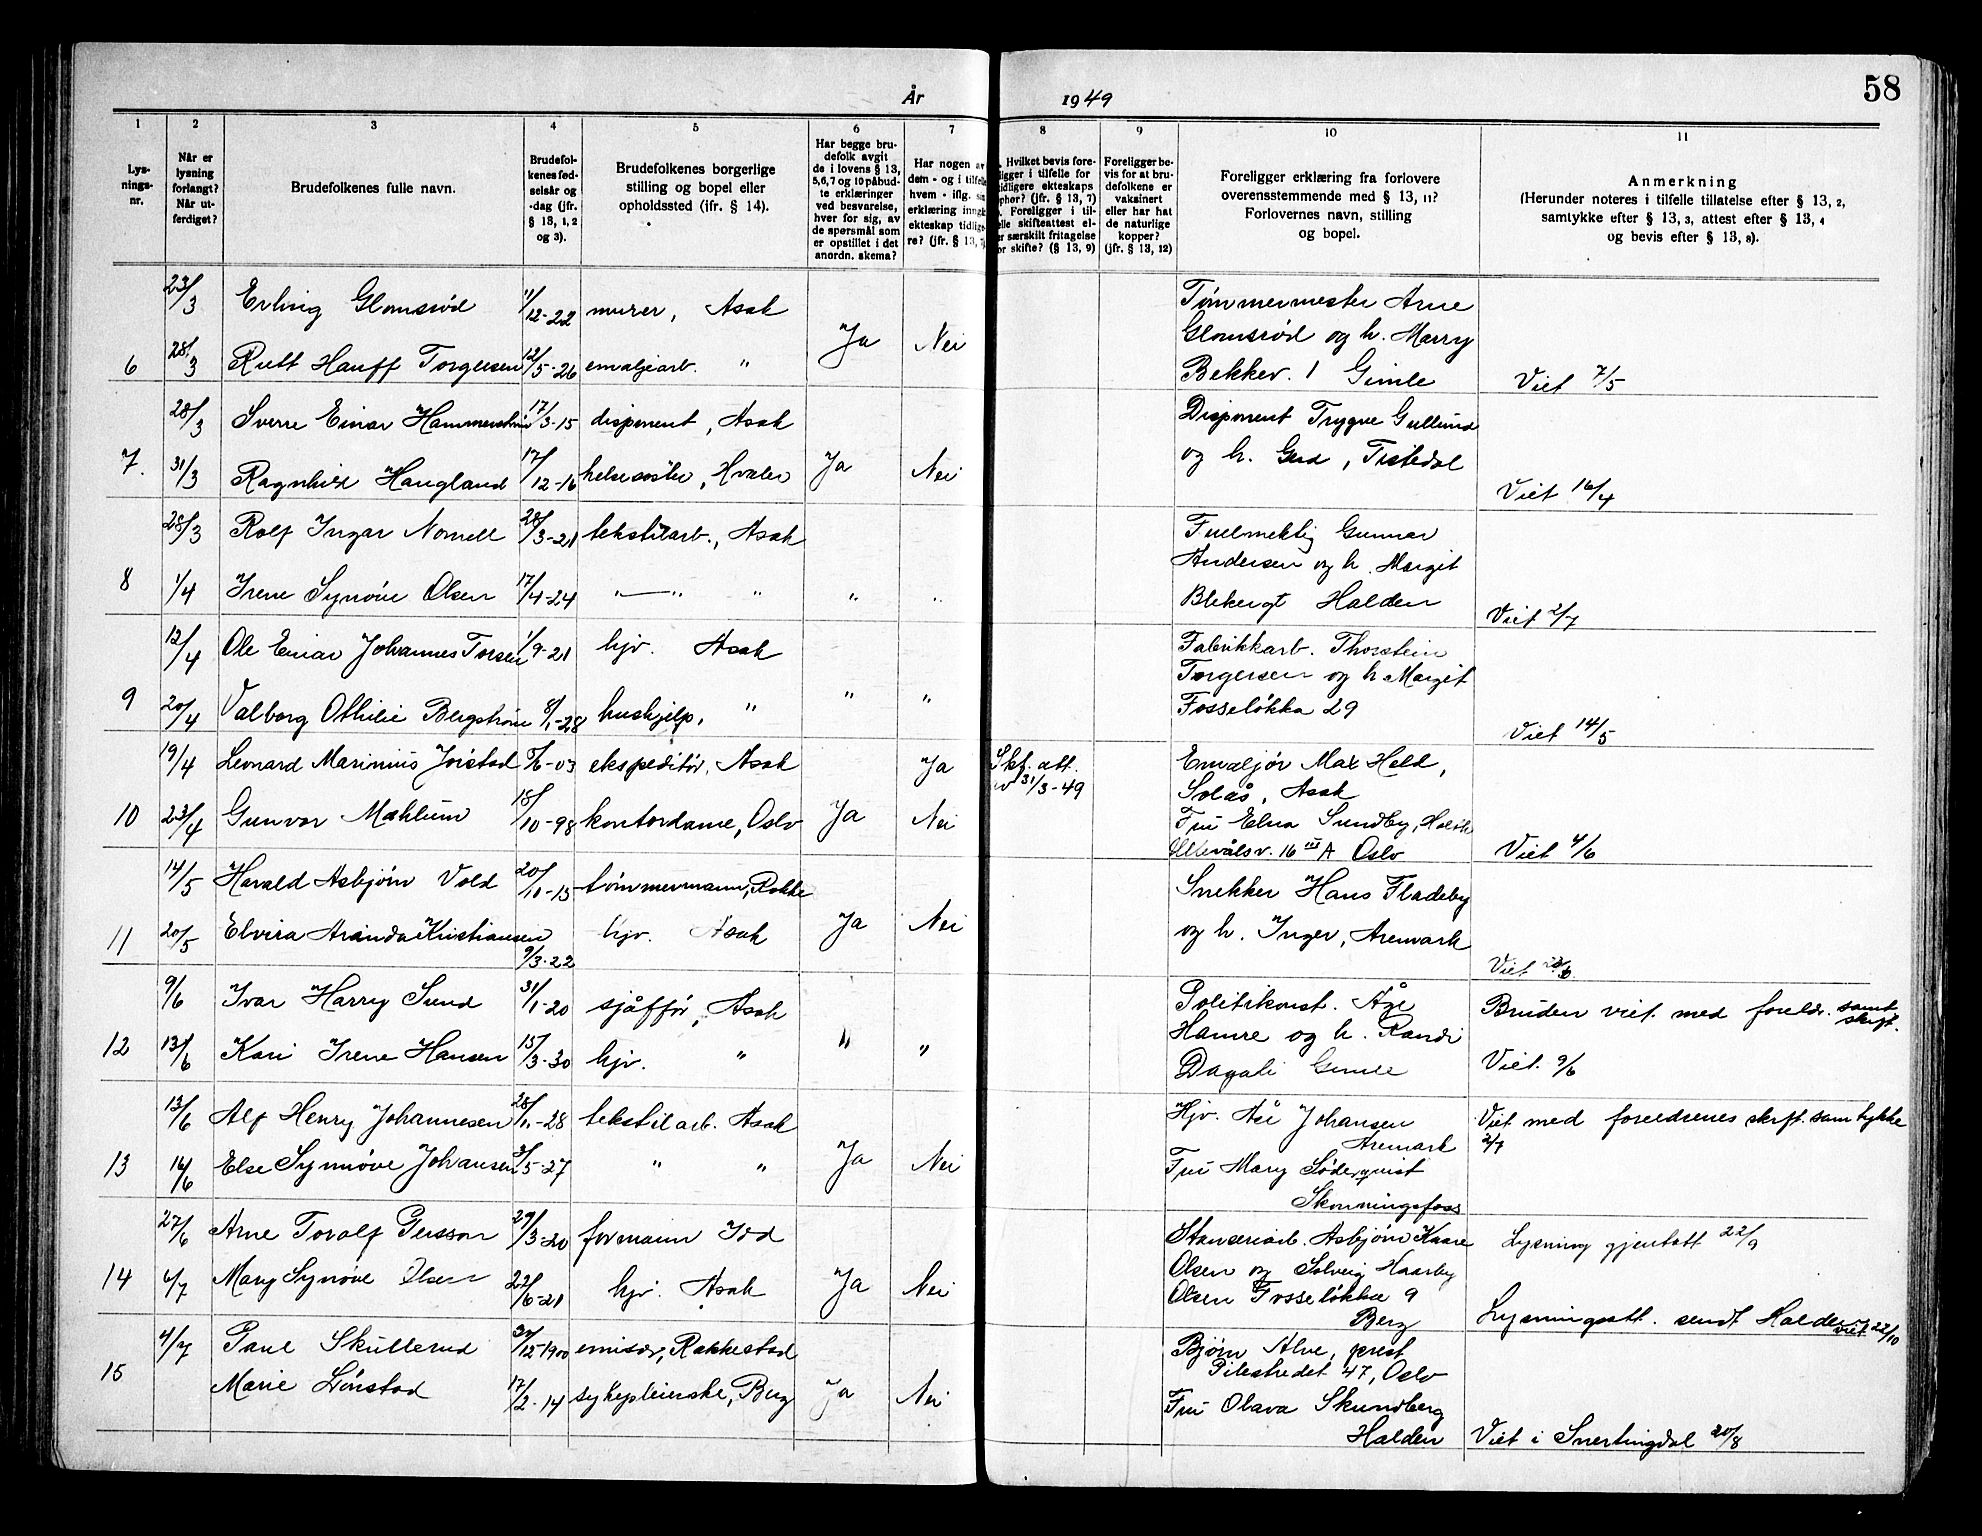 58
År 1949
1 2 3 4 5 6 7 8 9 10 11
Lys-
nings-
nr.
Når er
lysning
forlangt?
Når ut-
ferdiget?
Brudefolkenes fulle navn.
Brudefol-
kenes fød-
selsår og
-dag (jfr.
§ 13, 1, 2
og 3).
Brudefolkenes borgerlige
stilling og bopel eller
opholdssted (ifr. § 14).
Har begge bru-
defolk avgit
de i lovens § 13,
5,6,7 og 10 påbud-
te erklæringer
ved besvarelse,
hver for sig, av
de spørsmål som
er opstillet i det
anordn. skema?
Har nogen av
dem - og i tilfelle
hvem - iflg. sin
erklæring inngåt
ekteskap tidlige-
re? (jfr. § 13, 7)
Hvilket bevis fore-
ligger i tilfelle for
tidligere ekteskaps
opher? (jfr. § 13, 7)
Foreligger i til-
elle skifteattest el-
er særskilt fritagelse
or skifte? (§ 13, 9)
Foreligger be-
vis for at bru-
defolkene er
vaksinert
eller har hat
de naturlige
kopper?
(jfr. § 13, 12)
Foreligger erklæring fra forlovere
overensstemmende med § 13, 11?
Forlovernes navn, stilling
og bopel.
Anmerkning
(Herunder noteres i tilfelle tillatelse efter § 13, 2,
samtykke efter § 13, 3, attest efter § 13, 4
og bevis efter § 13, 8).
23/3 Erling Glomsrød 1/12-22 murer, Asak
6 28/3 Rutt Hauff Torgersen 12/5-26 emaljearb. " Ja Nei
Tømmermester Arne
Glomsrød og h. Marry
Bekkev. 1 Gimle
Viet 7/5
28/3 Sverre Einar Hammerstrøm 17/3-15 disponent, Asak
7. 31/3 Ragnhild Haugland 17/12-16 helsesøster, Hvaler Ja Nei
Disponent Trygve Gullund
og h. Gerd, Tistedal
Viet 16/4
28/3 Rolf Ingar Nomell 28/3-21 tekstilarb., Asak
8 1/4 Irene Synøve Olsen 17/4-24 " — " " " "
Fuelmektig Gunnar
Andersen og h. Margit
Blekergt Halden
Viet 2/7
12/4 Ole Einar Johannes Torsen 1/9-21 hjv. Asak
9 20/4 Valborg Othilie Bergstrøm 8/1-28 hushjelp, " " "
Fabrikkarb. Thorstein
Torgersen og h Margit
Fosseløkka 29
Viet 14/5
19/4 Leonard Marinius Jørstad 5/6-03 ekspeditør, Asak Ja Skf. att.
av 31/3-49
10 23/4 Gunvor Mæhlum 18/10-98 kontordame, Oslo Ja Nei
Emaljør Max Held,
Solås, Asak
Fru Elna Sundby,
Ullevålsv. 16 III A Oslo
Viet 4/6
14/5 Harald Asbjørn Vold 20/1-15 tømmermann, Rokke
11 20/5 Elvira Aranda Kristiansen 9/3-22 hjv. Asak Ja Nei
Snekker Hans Fladeby
og h. Inger, Aremark
Viet
9/6 Ivar Harry Sund 31/1-20 sjåffør, Asak
12 13/6 Kari Irene Hansen 15/3-30 hjv. " " "
Politikonst. Åge
Hamre og h. Randi
Dagali Gimle
Bruden viet med foreldr. samt.
skrift.
Viet. 9/6
13/6 Alf Henry Johannesen 28/1-28 tekstilarb. Asak
13 16/6 Else Synnøve Johansen 3/5-27 " " Ja Nei
Hjv. Åse Johansen
Aremark
Fru Mary Søderqvist
Skonningsfoss
Viet med foreldrenes skrft. samtykke
2/7
27/6 Arne Toralf Persson 29/3-20 formann Idd
14 6/7 Mary Synøve Olsen 22/6-21 hjv. Asak Ja Nei
Stanseriarb. Asbjørn Kaare
Olsen og Solveig Haarby
Olsen Fosseløkka 9
Berg
Lysning gjentatt 22/9
Lysningsatt. sendt Halden viet 22/10
4/7 Paul Skullerud 30/12-1900 emisær, Rakkestad
15 Marie Lønstad 17/2-14 sykepleierske, Berg Ja Nei
Bjørn Alve, prest
Pilestredet 47, Oslo
Fru Olava Skundberg
Halden
Viet i Snertingdal 20/8